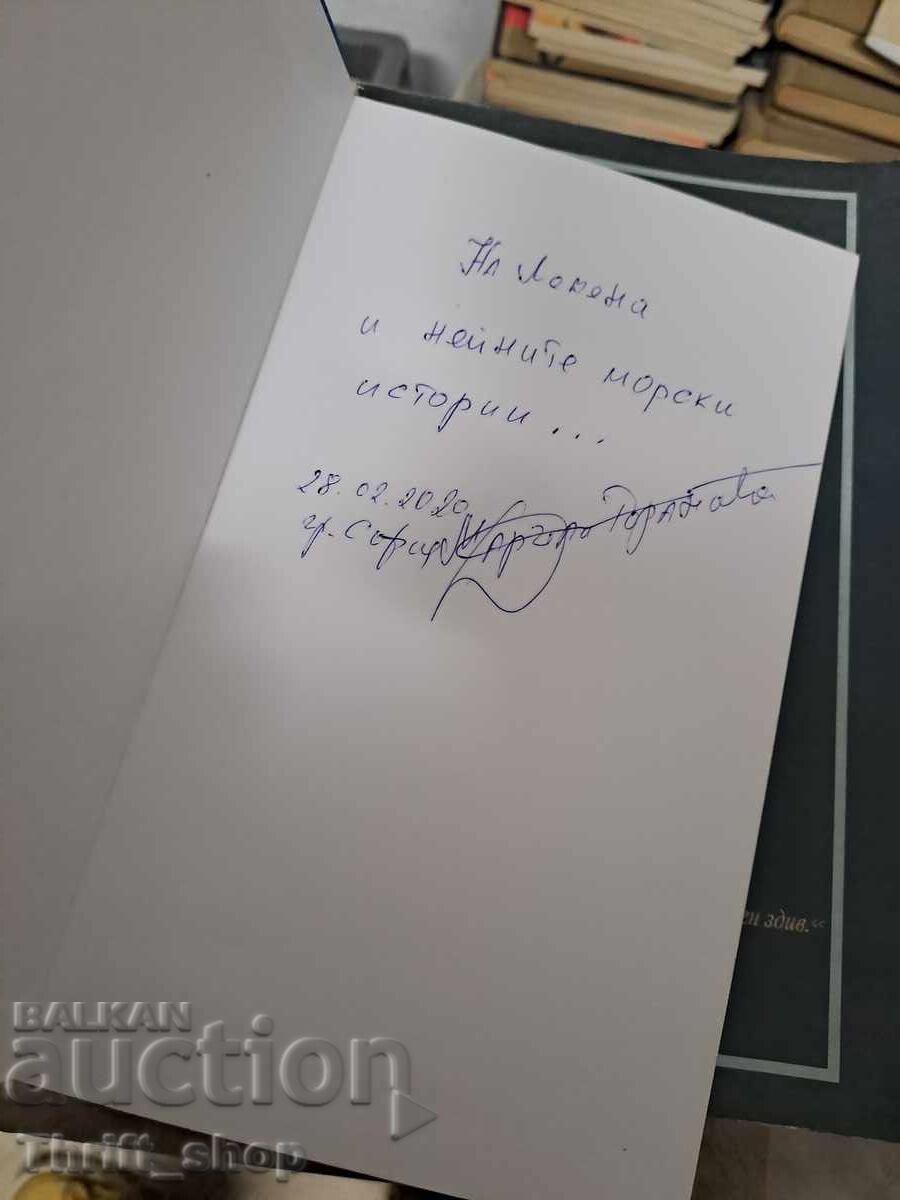 На
и нейните морски
истории...
28.02.2020
гр. София
ен здив.“
BALKAN
auction
Thrift_shop